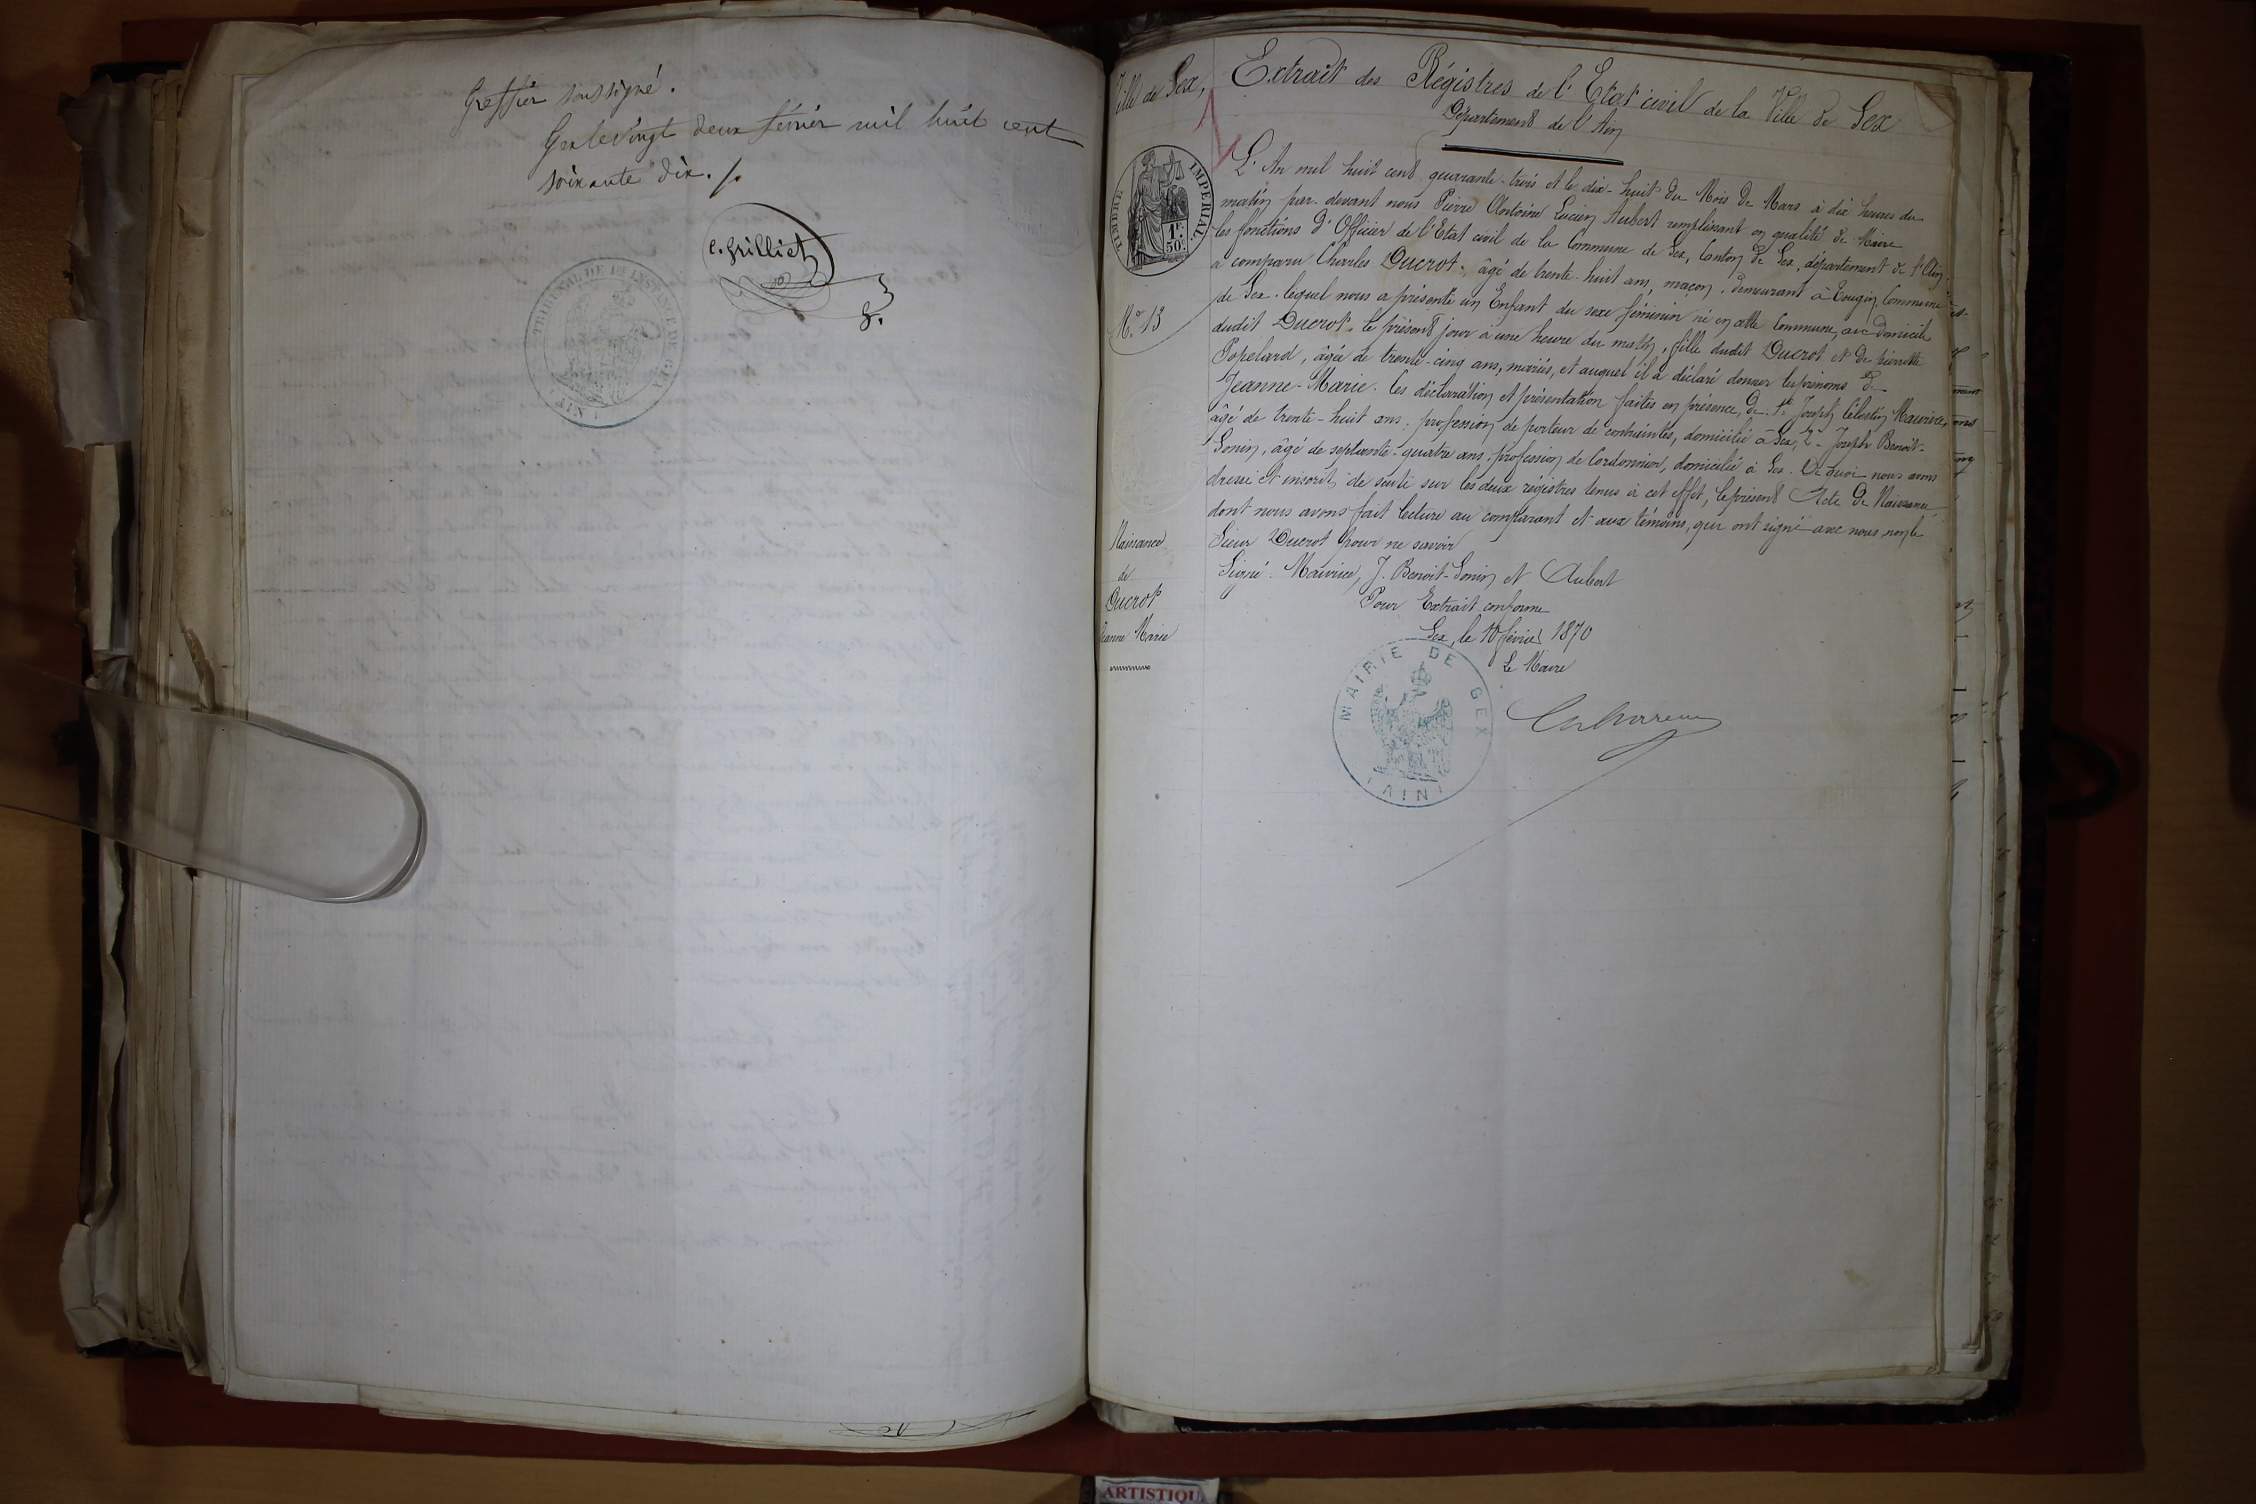 Greffier soussigné.
Gex le vingt deux février mil huit cent
soixante dix. /.
C. Grilliet
8.
TRIBUNAL DE 1re INSTANCE DE GEX
(AIN)
Ville de Gex,
Extrait des Régistres de l'Etat civil de la Ville de Gex
Département de l'Ain
TIMBRE IMPÉRIAL
1F.
50c.
N.º 13
L'An mil huit cent quarante-trois et le dix-huit du Mois de Mars à dix heures du
matin par-devant nous Pierre Antoine Lucien Aubert remplissant en qualité de Maire
les fonctions d'Officier de l'Etat civil de la Commune de Gex, Canton de Gex, département de l'Ain
a comparu Charles Ducrot, âgé de trente-huit ans, maçon, demeurant à Tougin, Commune
de Gex, lequel nous a présenté un Enfant du sexe féminin né en cette Commune, au domicile
dudit Ducrot, le présent jour à une heure du matin, fille dudit Ducrot et de Pierrette
Popelard, âgée de trente-cinq ans, mariés, et auquel il a déclaré donner les prénoms de
Jeanne-Marie. Ces déclaration et présentation faites en présence, de 1º Joseph Célestin Maurice,
âgé de trente-huit ans, profession de porteur de contraintes, domicilié à Gex, 2º Joseph Benoit-
Gonin, âgé de septante-quatre ans, profession de Cordonnier, domicilié à Gex. De quoi nous avons
dressé et inscrit de suite sur les deux régistres tenus à cet effet, le présent Acte de Naissance
dont nous avons fait lecture au comparant et aux témoins, qui ont signé avec nous non le
Sieur Ducrot pour ne savoir
Signé: Maurice, J. Benoit-Gonin et Aubert
Naissance
de
Ducrot
Jeanne Marie
Pour Extrait conforme
Gex, le 10 février 1870
Le Maire
MAIRIE DE GEX
(AIN)
ARTISTIQU